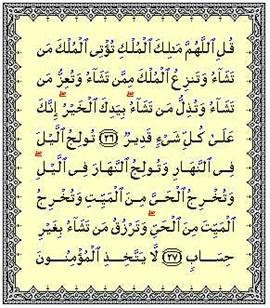 قُلِ ٱللَّهُمَّ مَـٰلِكَ ٱلْمُلْكِ تُؤْتِى ٱلْمُلْكَ مَن
تَشَآءُ وَتَنزِعُ ٱلْمُلْكَ مِمَّن تَشَآءُ وَتُعِزُّ مَن
تَشَآءُ وَتُذِلُّ مَن تَشَآءُ بِيَدِكَ ٱلْخَيْرُ إِنَّكَ
عَلَىٰ كُلِّ شَىْءٍ قَدِيرٌ ﴿٢٦﴾ تُولِجُ ٱلَّيْلَ
فِى ٱلنَّهَارِ وَتُولِجُ ٱلنَّهَارَ فِى ٱلَّيْلِ
وَتُخْرِجُ ٱلْحَىَّ مِنَ ٱلْمَيِّتِ وَتُخْرِجُ
ٱلْمَيِّتَ مِنَ ٱلْحَىِّ وَتَرْزُقُ مَن تَشَآءُ بِغَيْرِ
حِسَابٍ ﴿٢٧﴾ لَّا يَتَّخِذِ ٱلْمُؤْمِنُونَ